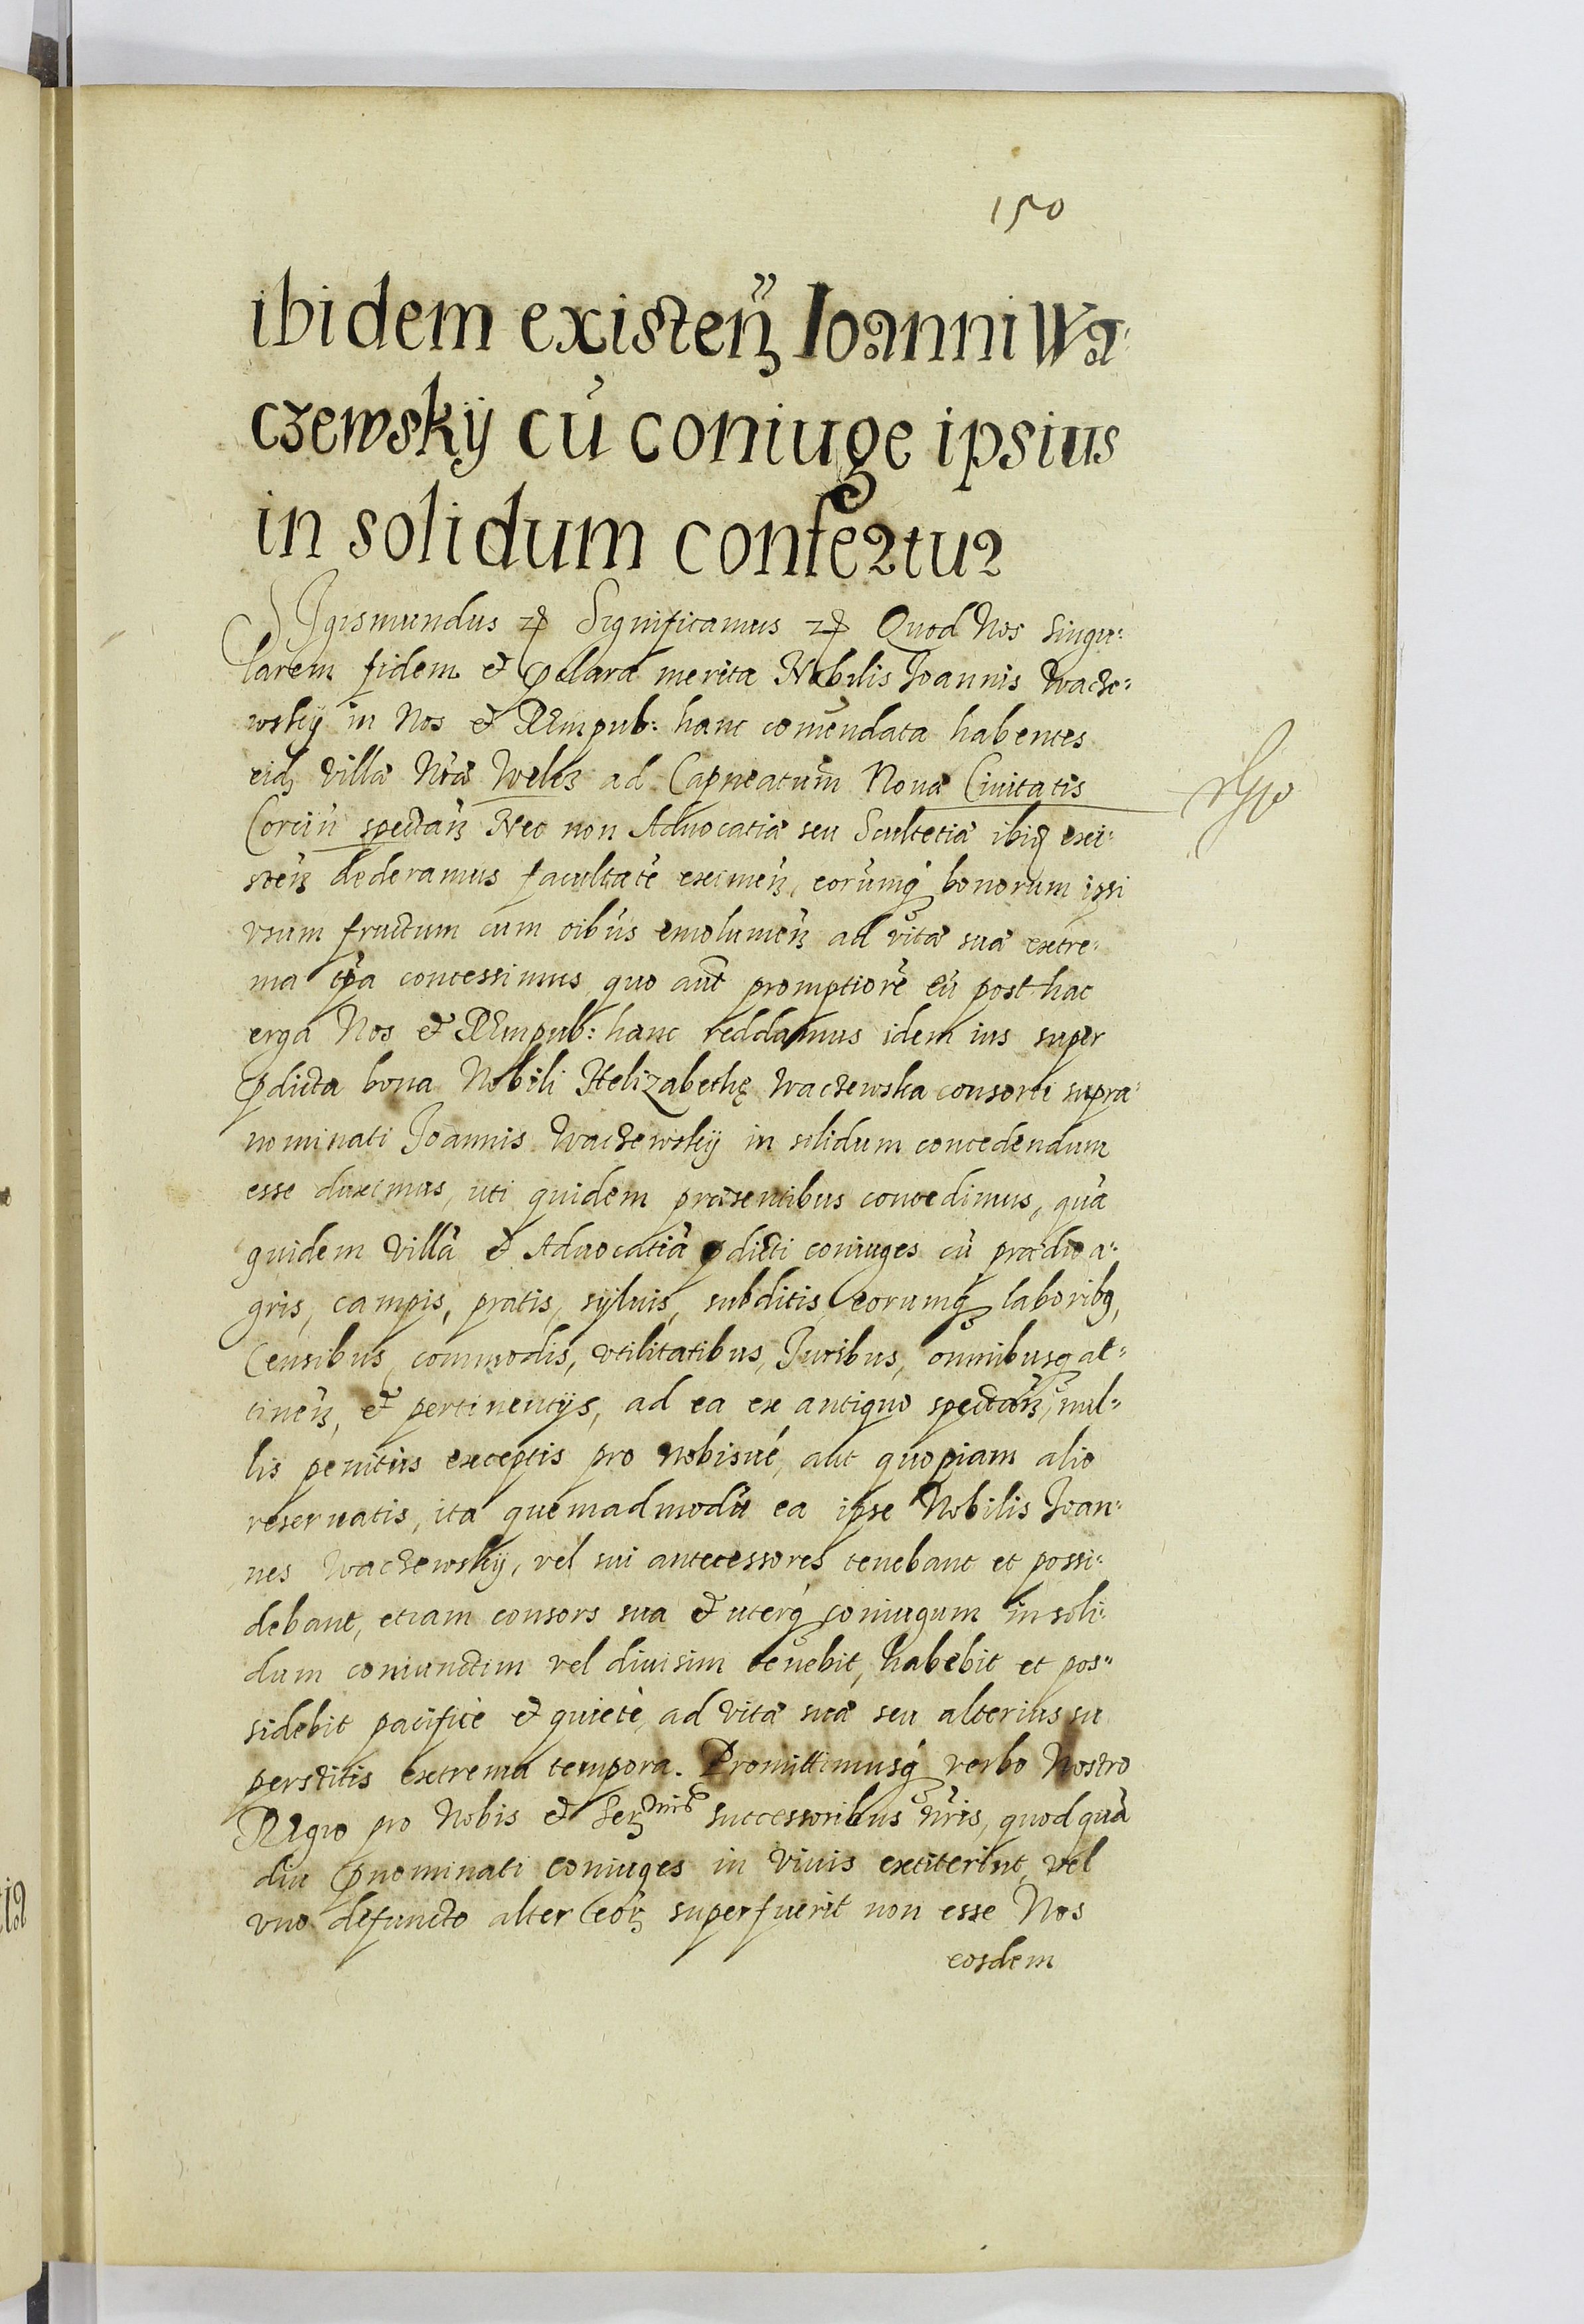 150
ibidem existen̄ʒ Ioanni Wa:
czewskÿ cū coniuge ipsius
in solidum confertur
SIgismundus ꝛc̃ Significamus ꝛc̃ Quod Nos singu:
larem fidem et p̄clara merita Nobilis Joannis Wacze:
wskÿ in Nos et REmpub: hanc com̄endata habentes
eidʒ villā Nrā Weltz ad Capneatum Noua Ciuitatis
Corcin̄ spectan̄ʒ Nec non Aduocatiā seu Scultetiā ibid̄ exi:
sten̄ʒ dederamus facultatē eximen̄ʒ, eorumq́ʒ bonorum ipsi
vsum fructum cum oībus emolumen̄ʒ ad vitā suā extre:
ma tp̄a concessimus quo aūt promptiorē eū post hac
erga Nos et REmpub: hanc reddamus idem ius super
p̄dicta bona Nobili Helizabethę Waczewska consorti supra:
nominati Joannis Waczewskÿ in solidum concedendum
esse duximus, uti quidem præsentibus concedimus, quā
quidem villā et Aduocatiā p̄dicti coniuges cū prædio a:
gris, campis, pratis, syluis, subditis, eorumq́ʒ laboribꝰ,
Censibus, commodis, vtilitatibus, Juribus, omnibusq́ʒ at:
tinen̄ʒ, et pertinentÿs, ad ea ex antiquo spectan̄ʒ, nul:
lis penitùs exceptis pro nobisué, aut quopiam alio
reseruatis, ita quemadmodū ea ipse Nobilis Joan:
nes Waczewskÿ, vel sui antecessores tenebant et possi:
debant, etiam consors sua et uterq́ʒ coniugum in soli:
dum coniunctim vel diuisim tenebit, habebit et pos:
sidebit pacificè et quietè, ad vitā suā seu alterius su
perstitis extrema tempora. Promittimusq́ʒ verbo Nostro
REgio pro Nobis et Serʒmis successoribus nr̄is, quod quā
diu p̄nominati coniuges in viuis extiterint, vel
vno defuncto alter eorʒ superfuerit non esse Nos
eosdem